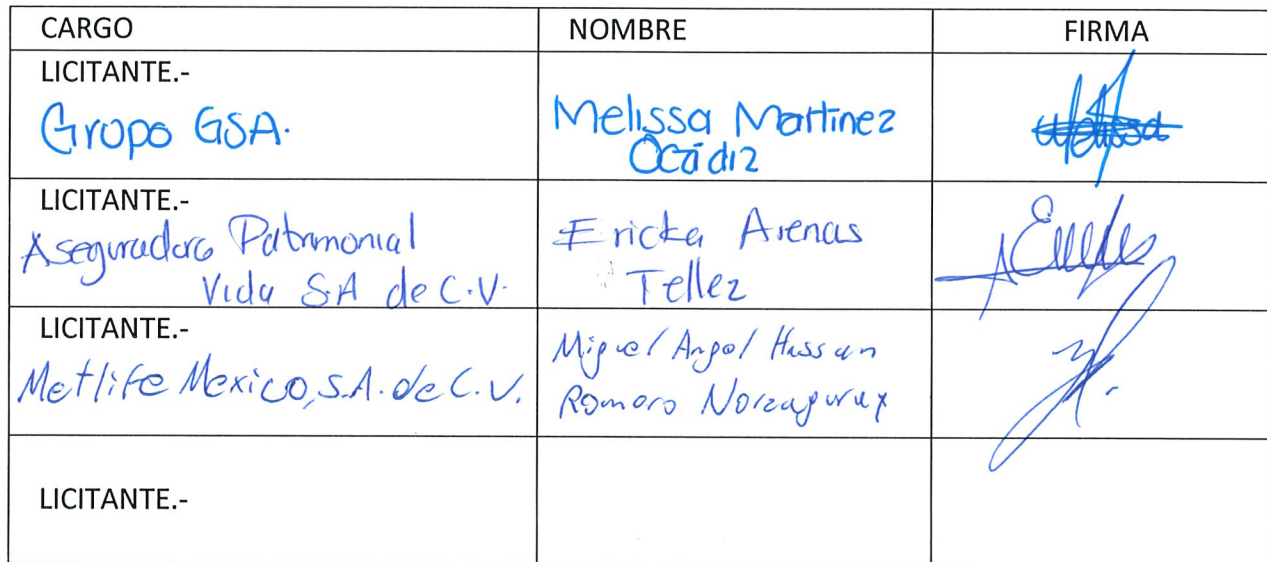 CARGO NOMBRE FIRMA
LICITANTE.-
Grupo GSA. Melissa Martinez
Ocádiz
LICITANTE.-
Aseguradora Patrimonial Ericka Arenas
Vida S.A de C.V. Tellez
LICITANTE.-
Metlife Mexico, S.A. de C.V. Miguel Angel Hassan
Romero
LICITANTE.-